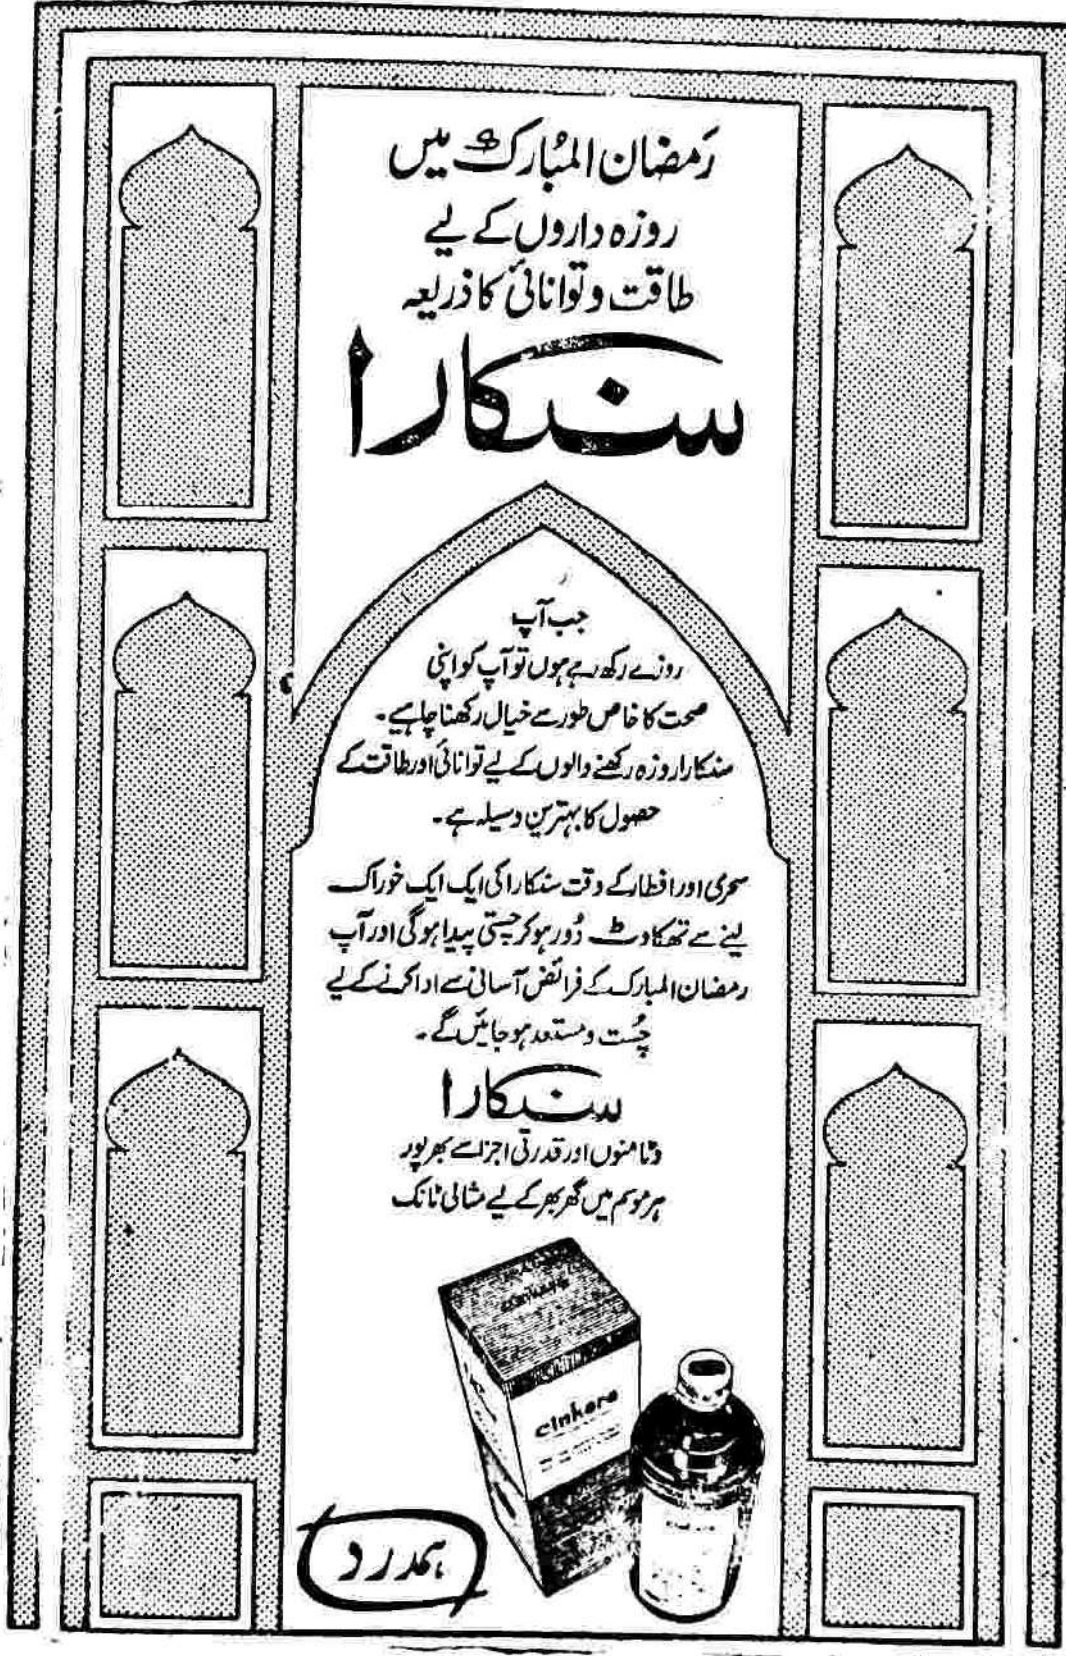 رَمضان المبُارک میں
روزہ داروں کے لیے
طاقت و توانائی کا ذریعہ
سنکارا
جب آپ
روزے رکھ رہے ہوں تو آپ کو اپنی
صحت کا خاص طور سے خیال رکھنا چاہیے۔
سنکارا روزہ رکھنے والوں کے لیے توانائی اور طاقت کے
حصول کا بہترین وسیلہ ہے۔
سحری اور افطار کے وقت سنکارا کی ایک ایک خوراک
لینے سے تھکاوٹ دُور ہو کر چستی پیدا ہوگی اور آپ
رمضان المبارک کے فرائض آسانی سے ادا کرنے کے لیے
چُست و مستعد ہو جائیں گے۔
سنکارا
وٹامنوں اور قدرتی اجزا سے بھرپور
ہر موسم میں گھر بھر کے لیے مثالی ٹانک
cinkara
cinkara
ہمدرد